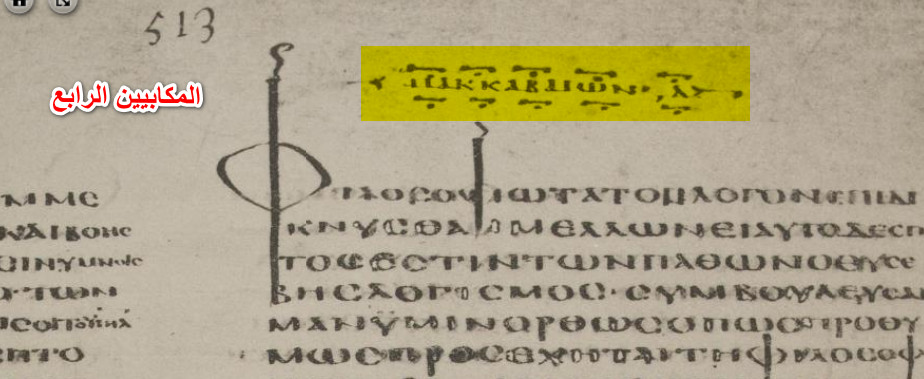 513
المكابيين الرابع
ΜΑΚΚΑΒΑΙΩΝ Δ
ΦΙΛΟϹΟΦΙΩΤΑΤΟΜΛΟΓΟΝΕΠΙΔΙ
ΚΝΥϹΘΑΙΜΕΛΛΩΝΕΙΑΥΤΟΔΕϹΠ
ΤΟϹΕϹΤΙΝΤΩΝΠΑΘΩΝΟΕΥϹΕ
ΒΗϹΛΟΓΙϹΜΟϹ·ϹΥΜΒΟΥΛΕΥϹΑΙ
ΜΑΝΫΜΙΝΟΡΘΩϹΟΠΩϹΠΡΟΘΥ
ΜΩϹΠΡΟϹΕΧΗΤΑΙΤΗΦΙΛΟϹΟΦ